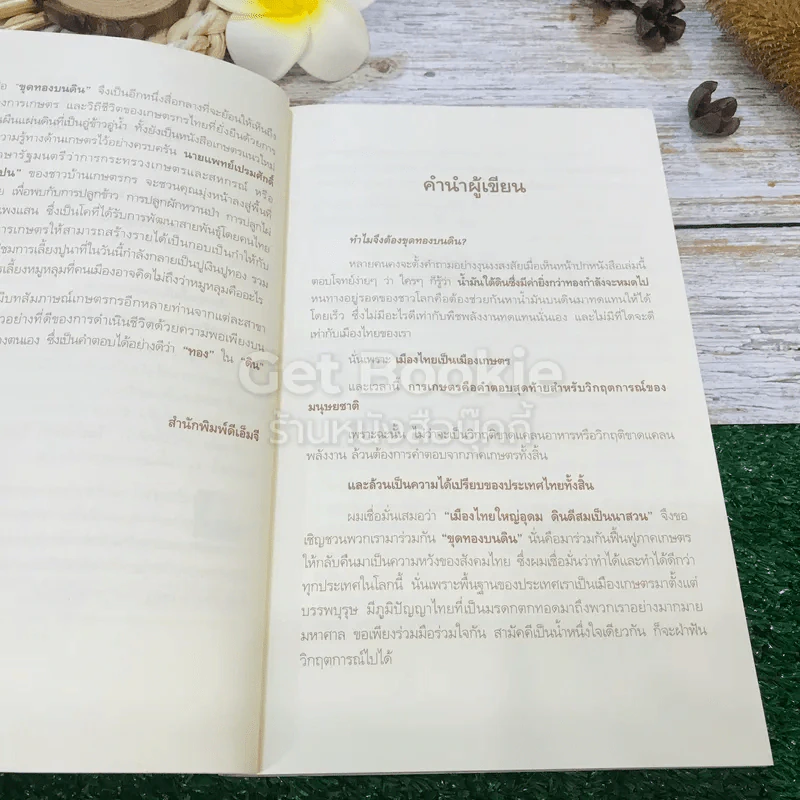 "ขุดทองบนดิน" จึงเป็นอีกหนึ่งสื่อกลางที่จะย้อนให้เห็นถึง
งการเกษตร และวิถีชีวิตของเกษตรกรไทยที่ยั่งยืนด้วยการ
ผืนแผ่นดินที่เป็นอู่ข้าวอู่น้ำ ทั้งยังเป็นหนังสือเกษตรแนวใหม่
วามรู้ทางด้านเกษตรไว้อย่างครบครัน นายแพทย์เปรมศักดิ์
ษารัฐมนตรีว่าการกระทรวงเกษตรและสหกรณ์ หรือ
ปน" ของชาวบ้านเกษตรกร จะชวนคุณมุ่งหน้าลงสู่พื้นที่
ย เพื่อพบกับการปลูกข้าว การปลูกผักหวานป่า การปลูกไผ่
แพงแสน ซึ่งเป็นโคที่ได้รับการพัฒนาสายพันธุ์โดยคนไทย
กรให้สามารถสร้างรายได้เป็นกอบเป็นกำให้กับ
ชมการเลี้ยงปูนาที่ในวันนี้กำลังกลายเป็นปูเงินปูทอง รวม
เลี้ยงหมูหลุมที่คนเมืองอาจคิดไม่ถึงว่าหมูหลุมคืออะไร
มีบทสัมภาษณ์เกษตรกรอีกหลายท่านจากแต่ละสาขา
วอย่างที่ดีของการดำเนินชีวิตด้วยความพอเพียงบน
งตนเอง ซึ่งเป็นคำตอบได้อย่างดีว่า "ทอง" ใน "ดิน"
สำนักพิมพ์ดีเอ็มจี
คำนำผู้เขียน
ทำไมจึงต้องขุดทองบนดิน?
หลายคนคงจะตั้งคำถามอย่างงุนงงสงสัยเมื่อเห็นหน้าปกหนังสือเล่มนี้
ตอบโจทย์ง่ายๆ ว่า ใครๆ ก็รู้ว่า น้ำมันใต้ดินซึ่งมีค่ายิ่งกว่าทองกำลังจะหมดไป
หนทางอยู่รอดของชาวโลกคือต้องช่วยกันหาน้ำมันบนดินมาทดแทนให้ได้
โดยเร็ว ซึ่งไม่มีอะไรดีเท่ากับพืชพลังงานทดแทนนั่นเอง และไม่มีที่ใดจะดี
เท่ากับเมืองไทยของเรา
นั่นเพราะ เมืองไทยเป็นเมืองเกษตร
Get Bookie
และเวลานี้ การเกษตรคือคำตอบสุดท้ายสำหรับวิกฤตการณ์ของ
มนุษยชาติ
ร้านหนังสือบุ๊คกี้
เพราะฉะนั้น ไม่ว่าจะเป็นวิกฤติขาดแคลนอาหารหรือวิกฤติขาดแคลน
พลังงาน ล้วนต้องการคำตอบจากภาคเกษตรทั้งสิ้น
และล้วนเป็นความได้เปรียบของประเทศไทยทั้งสิ้น
ผมเชื่อมั่นเสมอว่า "เมืองไทยใหญ่อุดม ดินดีสมเป็นนาสวน" จึงขอ
เชิญชวนพวกเรามาร่วมกัน "ขุดทองบนดิน" นั่นคือมาร่วมกันฟื้นฟูภาคเกษตร
ให้กลับคืนมาเป็นความหวังของสังคมไทย ซึ่งผมเชื่อมั่นว่าทำได้และทำได้ดีกว่า
ทุกประเทศในโลกนี้ นั่นเพราะพื้นฐานของประเทศเราเป็นเมืองเกษตรมาตั้งแต่
บรรพบุรุษ มีภูมิปัญญาไทยที่เป็นมรดกตกทอดมาถึงพวกเราอย่างมากมาย
มหาศาล ขอเพียงร่วมมือร่วมใจกัน สามัคคีเป็นน้ำหนึ่งใจเดียวกัน ก็จะฝ่าฟัน
วิกฤตการณ์ไปได้